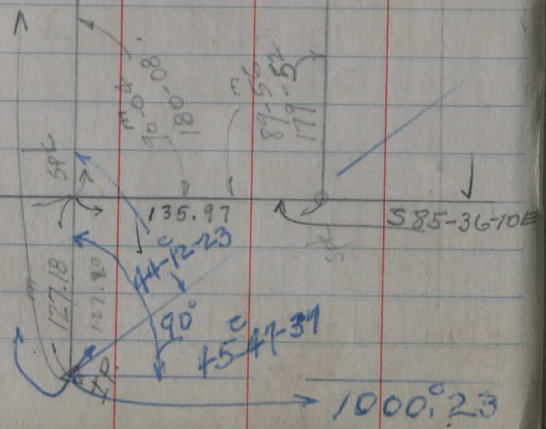 M-OK
90-04
180-08
m
89-56
179-52
SPC
135.97
S85-36-10E
127.18
127.20
44-12-23
c
90°
c
45-47-37
I.P.
1000.23
c